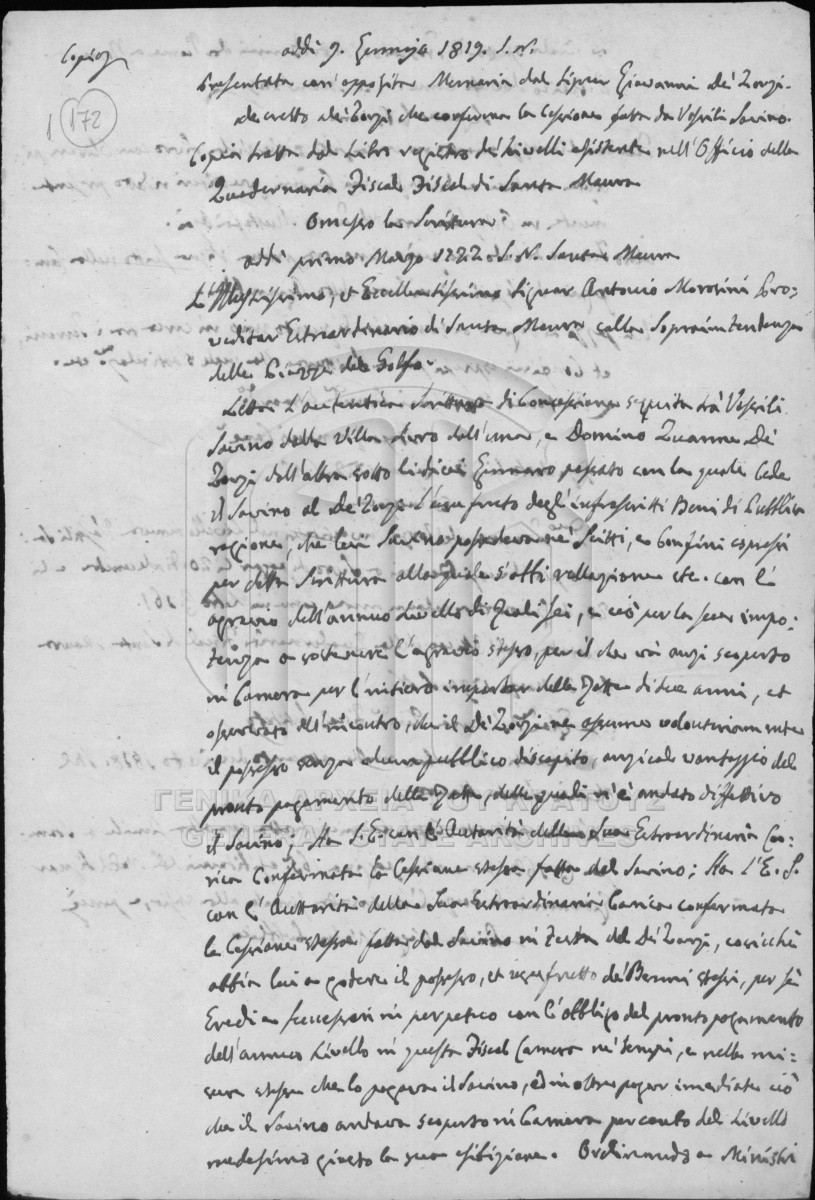 Copia
addi 9. Gennajo 1819. S.N.
1 172
Presentata con apposita Memoria dal Signor Giovanni De' Zorzi.
decretto dei Zorzi che conferma la Cessione fatta da Vassili Savino.
Copia tratta dal Libro registro de' Livelli esistente nell'Officio della
Quadernaria Fiscal Fiscal di Santa Maura
Omesso la Scrittura
addi primo Marzo 1722. S.N. Santa Maura
L'Illustrissimo, et Eccellentissimo Signor Antonio Morosini Pro:
veditor Estraordinario di Santa Maura colla Sopraintendenza
della Piazza del Golfo.
Letta l'autentica Scrittura di Concessione seguita trà Vassili
Savino della Villa dell'una, e Domino Zuanne De'
Zorzi dall'altra sotto li dieci Gennaro passato con la quale Cede
il Savino al De' Zorzi l'usufruto degl'infrascritti Beni di Pubblica
ragione, che lui Savino possedeva ne' Scitti, e Confini espressi
per detta Scrittura alla quale s'abbi rellazione etc. con l'
agravio dell'annuo Livello di Reali sei, e ciò per la sua impo:
tenza a sostenere l'agravio stesso, per il che và anzi scoperto
in Camera per l'intiero importar delle Ratte di due anni, et
osservato all'incontro, che il De' Zorzi ne assume volontariamente
il possesso senza alcun pubblico discapito, anzi col vantaggio del
pronto pagamento delle Ratte, delle quali n'è andato difettivo
il Savino; Ha S.E. con l'Autorità della Sua Estraordinaria Ca:
rica Confermata la Cessione stessa fatta dal Savino; Ha l'E.S.
con l'Auttorità della Sua Estraordinaria Carica confermata
la Cessione stessa fatta dal Savino in Testa del De' Zorzi, cosicchè
abbia lui a godere il possesso, et usufrutto de' Benni stessi, per sè
Eredi e successori in perpetuo con l'obbligo del pronto pagamento
dell'annuo Livello in questa Fiscal Camera ne' tempi, e nella mi:
sura stessa che lo pagava il Savino, ed in oltre pagar imediate ciò
che il Savino andava scoperto in Camera per conto del Livello
medesimo giusto la sua esibizione. Ordinando a Ministri
ΓΕΝΙΚΑ ΑΡΧΕΙΑ ΤΟΥ ΚΡΑΤΟΥΣ
GENERAL STATE ARCHIVES